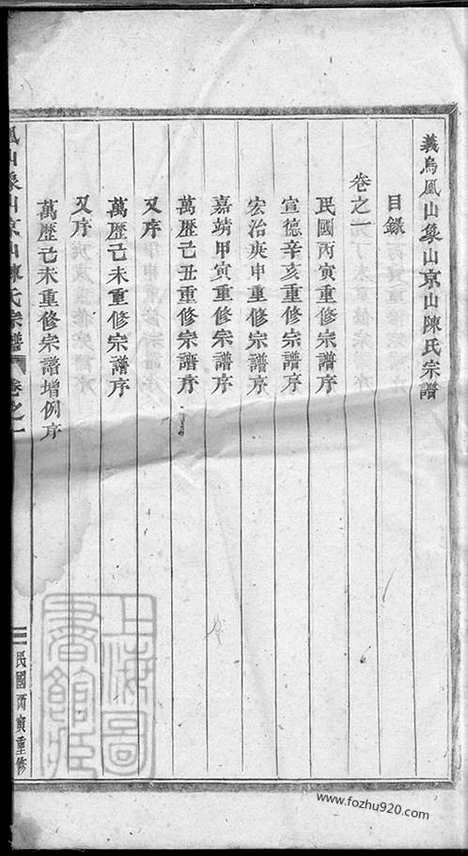 義烏鳳山象山京山陳氏宗譜
目錄
卷之一
民國丙寅重修宗譜序
宣德辛亥重修宗譜序
宏治庚申重修宗譜序
嘉靖甲寅重修宗譜序
萬歷己丑重修宗譜序
又序
萬歷己未重修宗譜序
又序
萬歷己未重修宗譜增例序
鳳山象山京山陳氏宗譜 卷之一
民國丙寅重修
上海圖書館藏
www.fozhu920.com